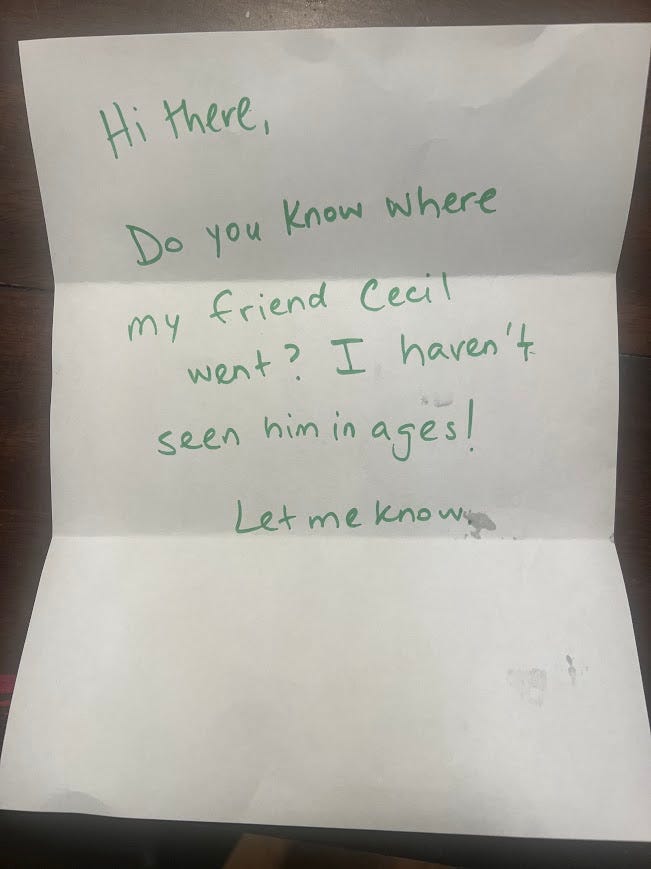 Hi there,
Do you know where
my friend Cecil
went? I haven't
seen him in ages!
Let me know.